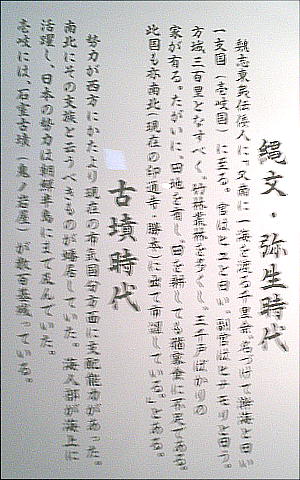 縄文・弥生時代
魏志東夷伝倭人に「又南に一海を渡る千里余名づけて瀚海と曰い
一支国(壱岐国)に至る。官はヒコと曰い、副官はヒナモリと曰う。
方域三百里となすべく、竹林叢林多くし、三千戸ばかりの
家が有る。たがいに、田地を有し、田を耕しても猶食に不足である。
此国も亦南北(現在の印通寺・勝本)に出て市糴している。」とある。
古墳時代
勢力が西方にかたより現在の布武国分方面に支配能力があった。
南北にその支族と云うべきものが蟠居していた。海人部が海上に
活躍し、日本の勢力は朝鮮半島にまで及んでいた。
壱岐には、石室古墳(鬼ノ岩屋)が数百基残っている。